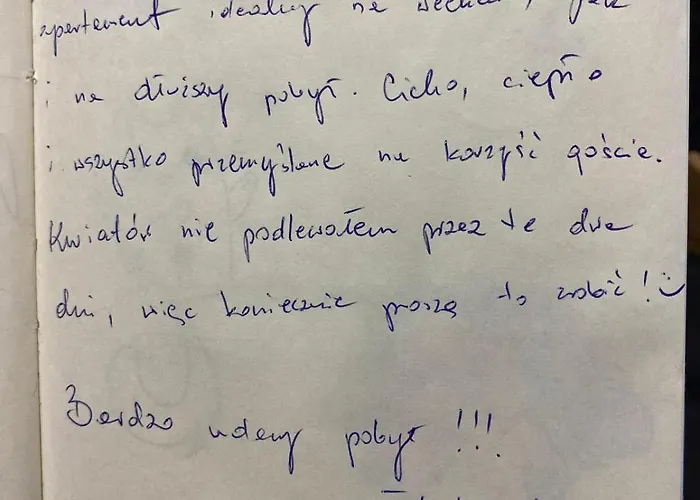 apartament idealny na weekend, jak
i na dłuższy pobyt. Cicho, ciepło
i wszystko przemyślane na korzyść gościa.
Kwiatów nie podlewałem przez te dwa
dni, więc koniecznie proszę to zrobić! :)
Bardzo udany pobyt!!!